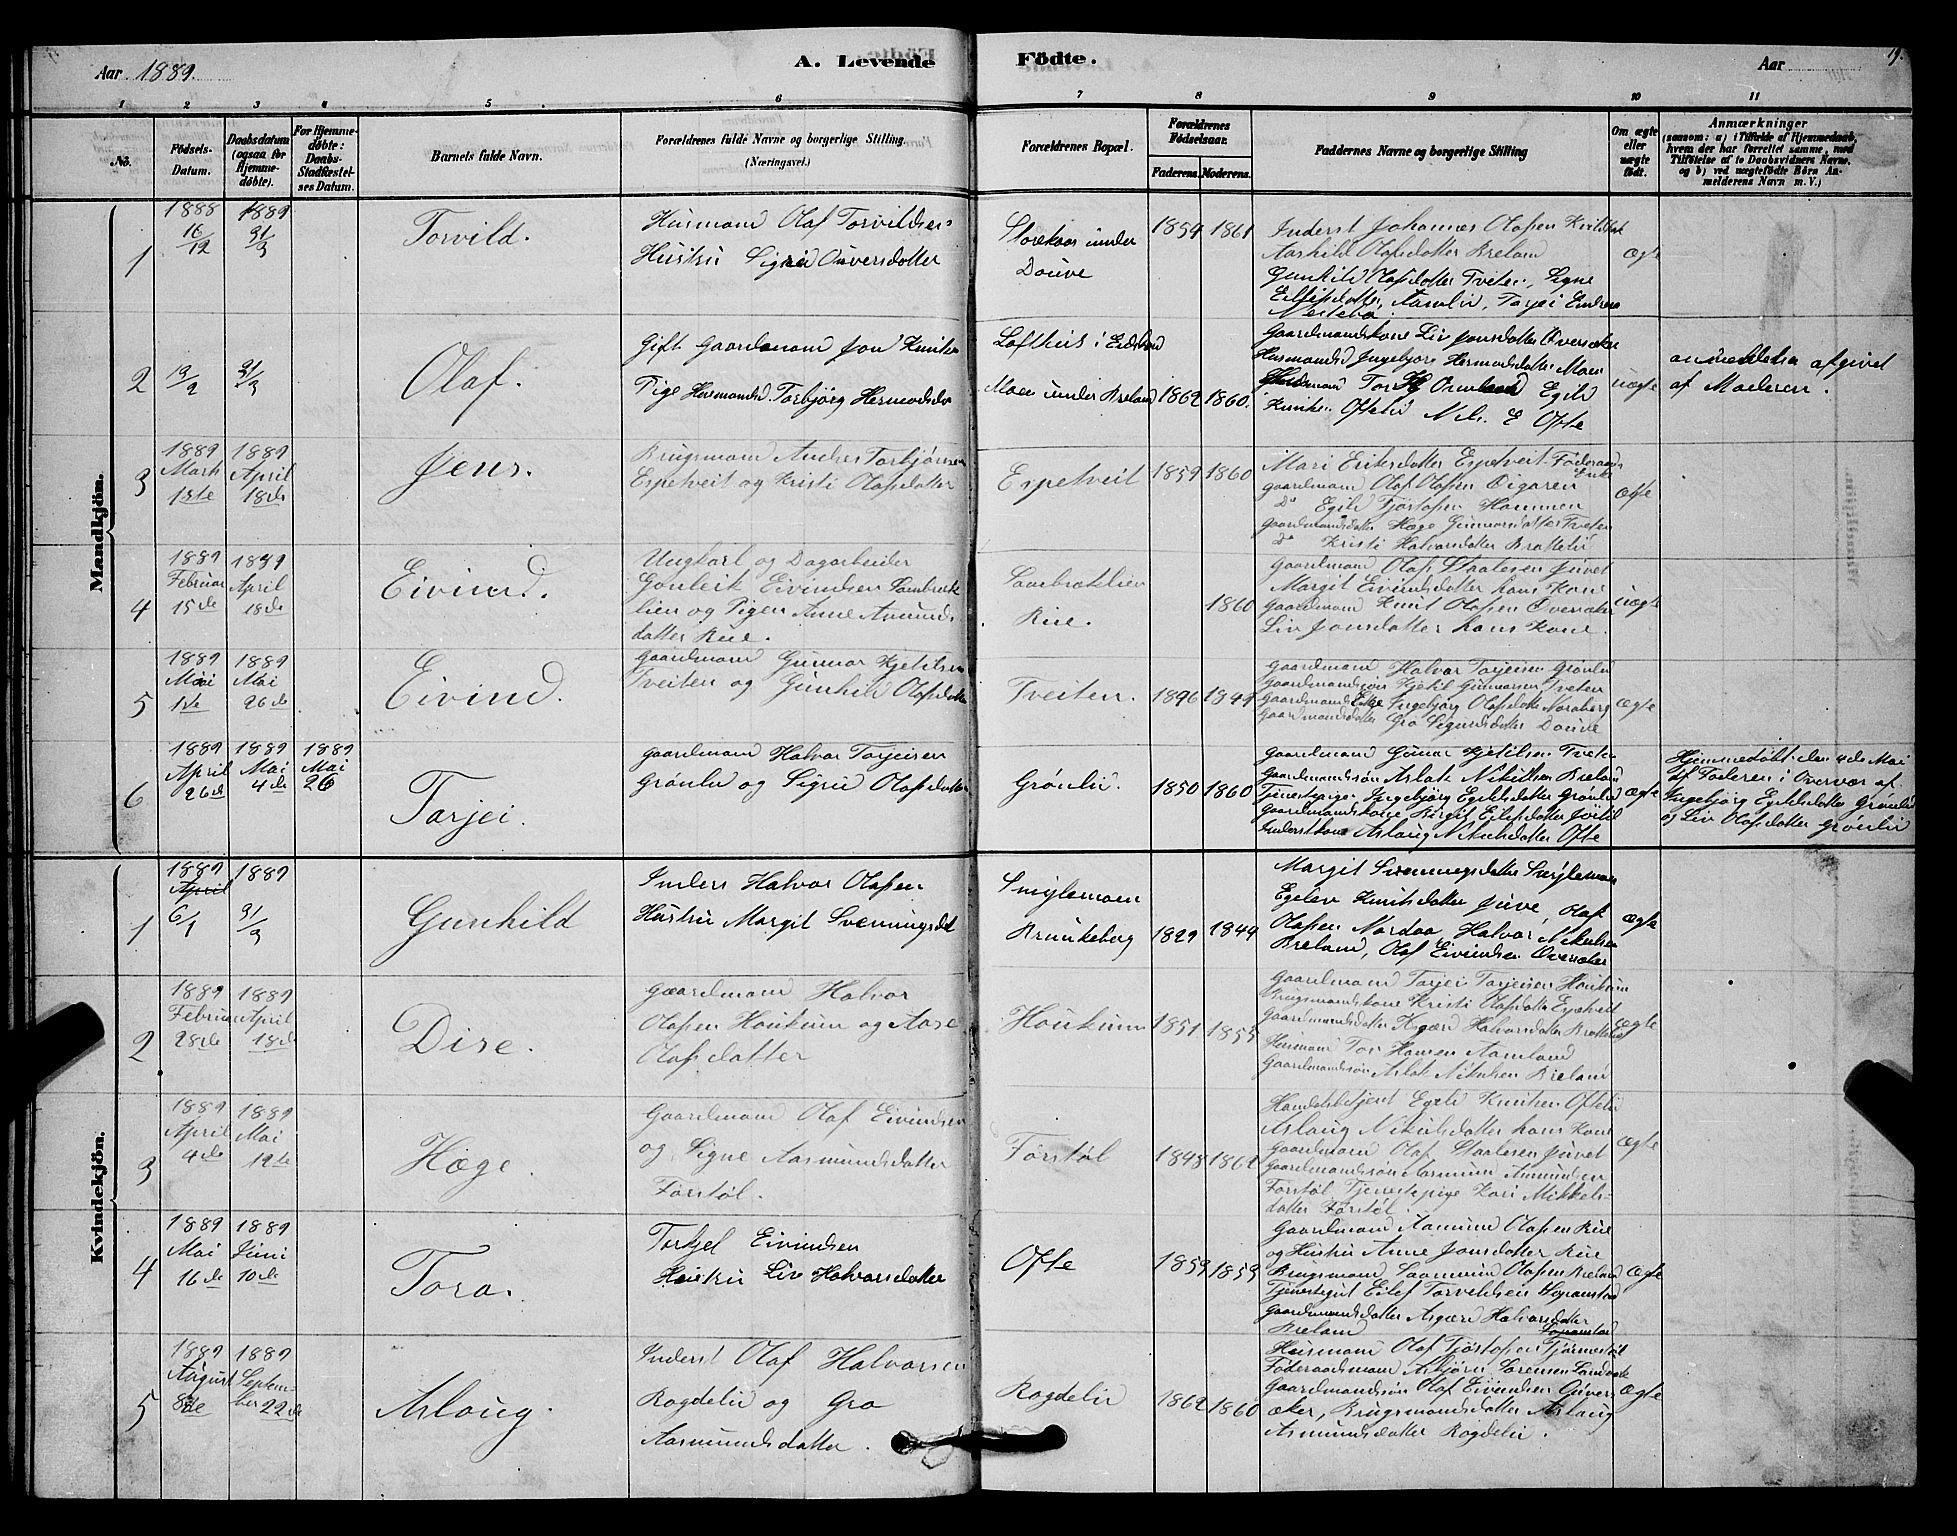 Aar 1889.
A. Levende
Födte.
Aar
19.
1 2 3 4 5 6 7 8 9 10 11
No.
Födsels-Datum.
Daabsdatum (ogsaa for Hjemme-döbte).
For Hjemme-döbte: Daabs-Stadfæstelses Datum.
Barnets fulde Navn.
Forældrenes fulde Navne og borgerlige Stilling. (Næringsvei.)
Forældrenes Bopæl.
Forældrenes Födselsaar.
Faderens. Moderens.
Faddernes Navne og borgerlige Stilling
Om ægte eller uægte födt.
Anmærkninger
(saasom: a) i Tilfælde af Hjemmedaab, hvem der har forrettet samme, med Tilföielse af to Daabsvidners Navne, og b) ved uægtefödte Börn Anmelderens Navn m. V.)
Mandkjön.
1
1888 16/12
1889 31/3
Torvild.
Husmand Olaf Torvildsen
Hustru Signe Onversdatter
Storekaas under
Douve
1859 1861
Inderst Johannes Olafsen
Aashild Olafsdatter Breland
Gunhild Olafsdatter Tveten, Signe
Eilefsdatter, Aamlid, Tarjei Endresen
Nestebø.
Ægte
2
13/2
31/3
Olaf.
Gift Gaardmand Jon Knutsen
Pige Husmandsd. Torbjörg Hermodsda
Lofthus i Eidsborg
Moen under Breland
1862 1860.
Gaardmandskone Liv Jonsdatter Oversaker
Husmandsd Ingebjörg Hermodsdatter Moen
Tor H Omland Egild
Knutsen Oftelid Nils E Ofte
uægte
anmeldelse afgivet
af Moderen.
3
1889 Marts 1ste
1889 April 18de
Jens.
Brugsmand Anders Torbjörnsen
Espetveit og Kristi Olafsdatter
Espetveit
1859 1860
Mari Eriksdatter Espetveit Föderaads
Enke
Gaardmand Olaf Olafsen Oigaren
Do Egild Tjöstofsen Hommen
Gaardmandsdatter Hæge Gunnarsdatter Tveten
Do Kristi Halvorsdatter Brattelid
ægte
4
1889 Februar 15de
1889 April 18de
Eivind.
Ungkarl og Dagarbeider
Gonleik Eivindsen Sambrek
lien og Pigen Anne Asmunds
datter Rue.
Rue.
1860
Gaardmand Olaf Staalesen Juvet
Margit Eivindsdatter hans Kone
Gaardmand Knut Olafsen Oversaker
Liv Jonsdatter hans Kone.
uægte
5
1889 Mai 1ste
1889 Mai 26de
Eivind.
Gaardmand Gunnar Kjetilsen
Tveiten og Gunhild Olafsdatter
Tveiten.
1846 1849
Gaardmand Halvor Tarjeisen Grönlid
Gaardmandssön Kjetil Gunnarsen Tveten
Gaardmands Enke Ingebjörg Olafsdatter Noraberg
Gaardmandsdatter Gro Sigurdsdatter Douve
Ægte
6
1889 April 26de
1889 Mai 4de
1889 Mai 26
Tarjei.
Gaardmand Halvor Tarjeisen
Grönlid og Sigrid Olafsdatter
Grönlid.
1850 1860
Gaardmand Gunnar Kjetilsen Tveten
Gaardmandssön Aslak Nikulsen Breland
Tjenestepige Ingebjörg Egildsdatter Grönlid
Gaardmandskone Birgit Eilefsdatter
Inderstkone Aslaug Nikulsdatter Ofte
Ægte
Hjemmedöbt den 4de Mai
af Faderen i Overvær af
Ingebjörg Egildsdatter Grönlid
og Liv Olafsdatter Grönlid
Kvindekjön.
1
1889 April 6/1
1889 31/3
Gunhild
Inders Halvor Olafsen
Hustru Margit Svenningsdat
Smylemoen
Brunkeberg
1829 1844
Margit Svenningsdatter
Knutsdatter Juve, Olaf
Olafsen Nordaa, Halvor Nikulsen
Breland, Olaf Eivindsen Oversaker
Ægte
2
1889 Februar 28de
1889 April 18de
Dise.
Gaardmand Halvor
Olafsen Haukum og Aase
Olafsdatter
Haukum
1851 1855
Gaardmand Tarjei Tarjeisen Haukum
Brugsmandskone Kristi Olafsdatter Espetveit
Gaardmandsdatter Asgjerd Halvorsdatter Brattelid
Husmand Tor Hansen Aamland
Gaardmandssön Aslak Nikulsen Breland
Ægte
3
1889 April 4de
1889 Mai 12te
Hæge.
Gaardmand Olaf Eivindsen
og Signe Aasmundsdatter
Förstöl.
Förstöl
1848 1862
Handelsbetjent Egild Knutsen Oftelid
Aslaug Nikulsdatter hans Kone
Gaardmand Olaf Staalesen Juvet
Gaardmandssön Aasmund Aamundsen
Förstöl Tjenestepige Kari Mikkels-
datter Förstöl.
Ægte
4
1889 Mai 16de
1889 Juni 10de
Tora.
Torkjel Eivindsen
Hustru Liv Halvorsdatter
Ofte
1859 1853
Gaardmand Aamund Olafsen Rue
og Hustru Anne Jonsdatter Rue
Brugsmand Saamund Olafsen Breland
Tjenestegut Eilef Torvildsen
Gaardmandsdatter Asgjerd Halvorsdatter
Breland
Ægte
5
1889 August 8de
1889 September 22de
Aslaug.
Inderst Olaf Halvorsen
Rogdelid og Gro
Aasmundsdatter.
Rogdelid
1862 1860
Husmand Olaf Tjöstofsen
Föderaadsmand Asbjörn Sörensen
Gaardmandssön Olaf Eivindsen Övers
aker, Brugsmandsdatter Aslaug
Asmundsdatter Rogdelid.
Ægte